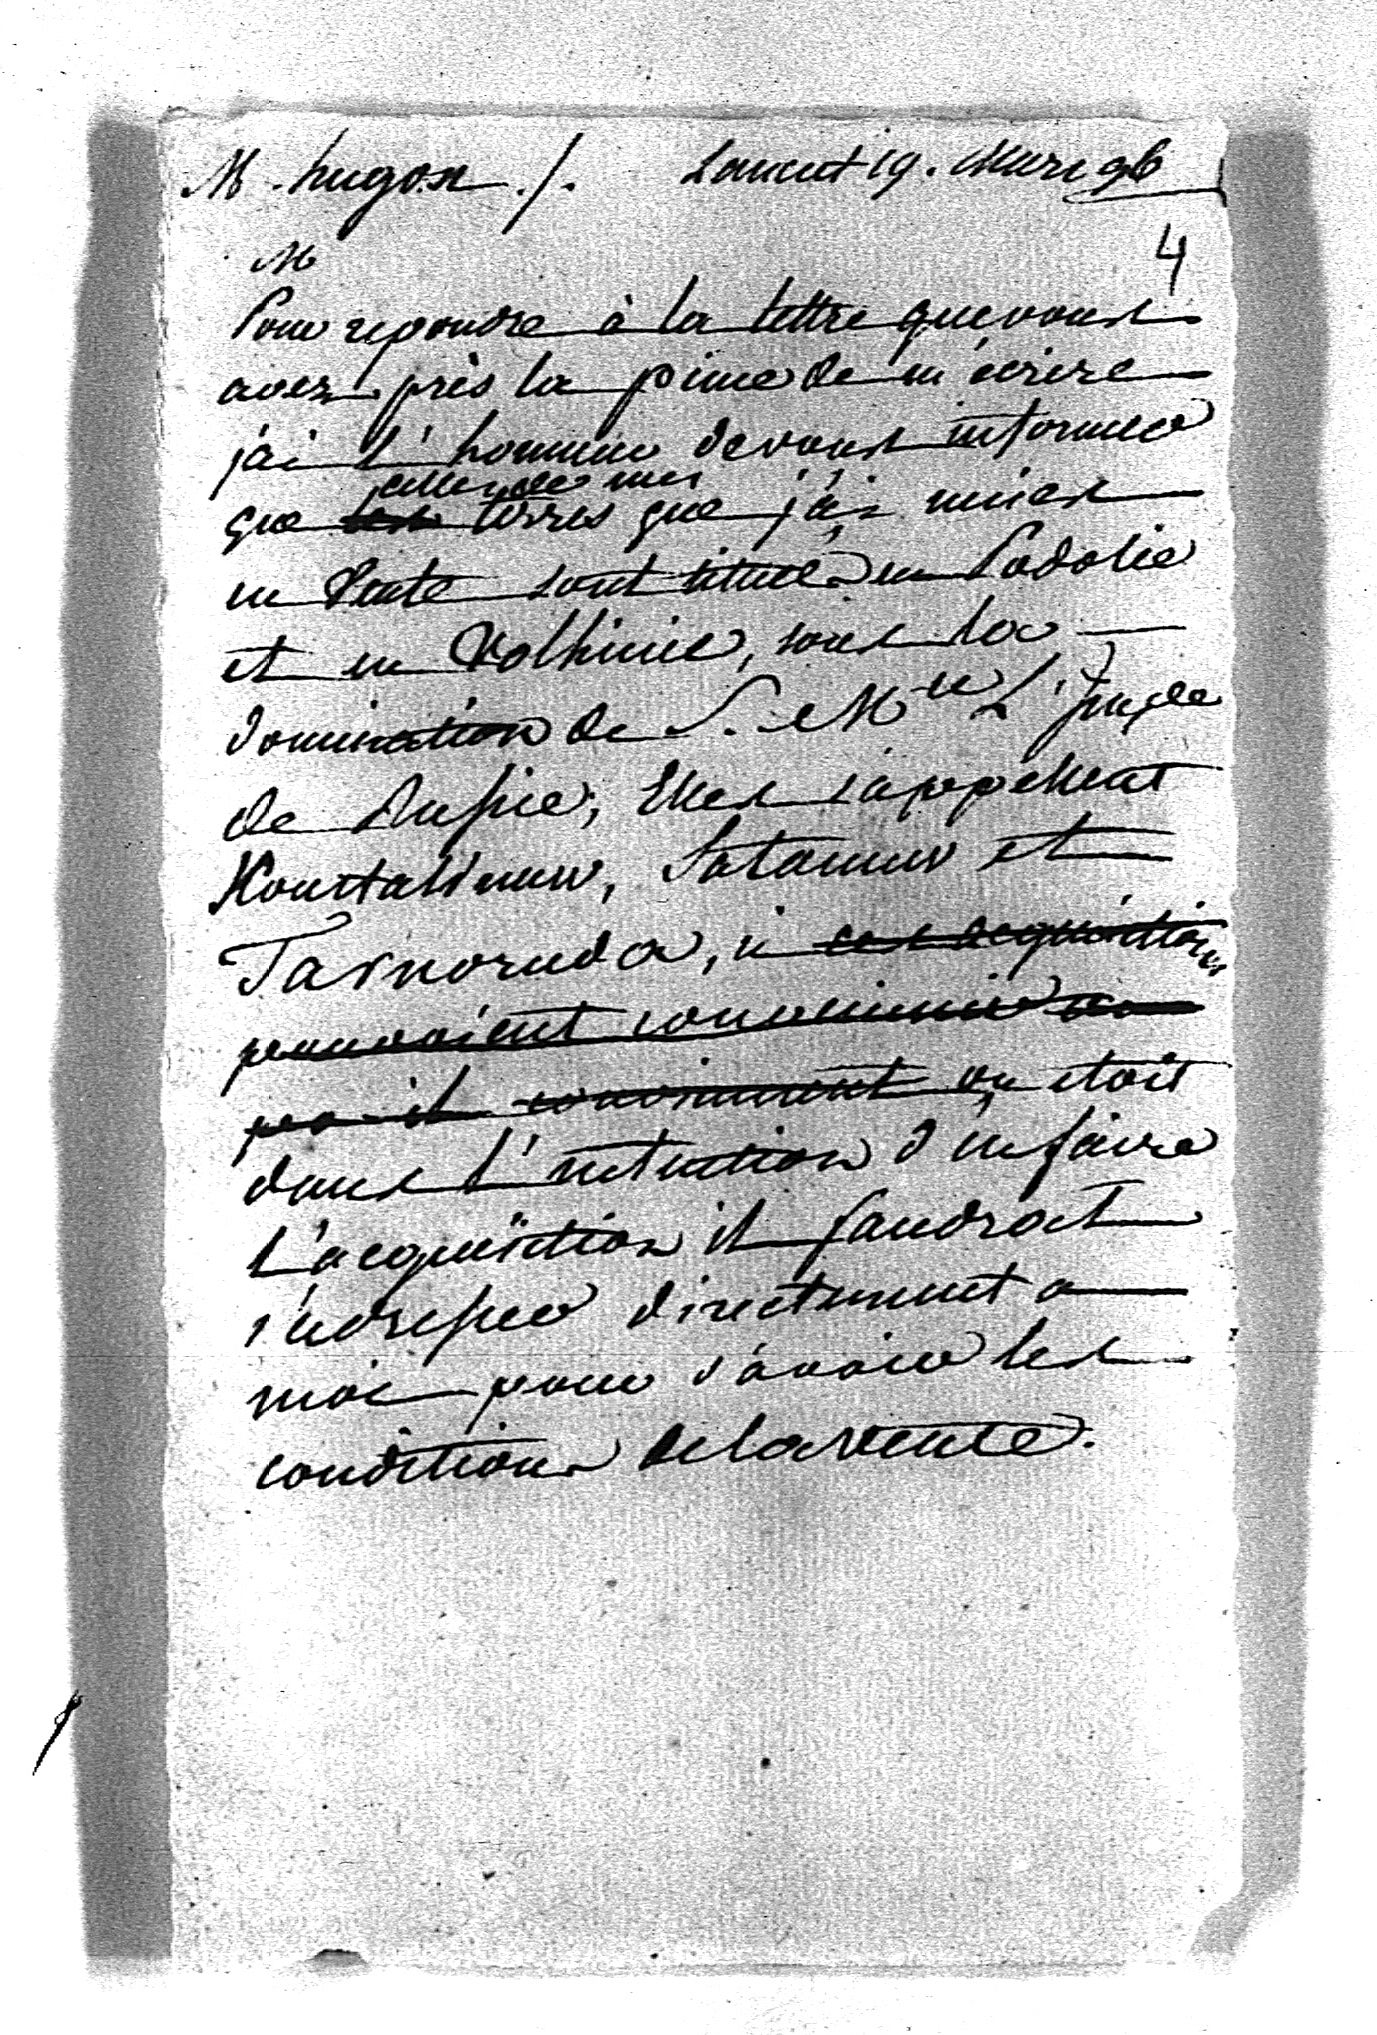 M. hugon ./. Lancut 19. Mars 96
4
M
Pour repondre à la lettre que vous
avez pris la peine de m'écrire
j'ai l'honneur de vous informer
celles de mes
que les terres que j'ai mises
en vente sont situées en Podolie
et en Volhinie, sous la
domination de S. M.té L'Imp.ce
de Russie; Elles s'appellent
Satanow et
Tarnoruda, si ces acquisitions
pouvaient convenir a
il convienment on etoit
dans l'intention d'en faire
L'acquisition il faudroit
s'adresser directement a
moi pour s'avoir les
conditions de la vente.